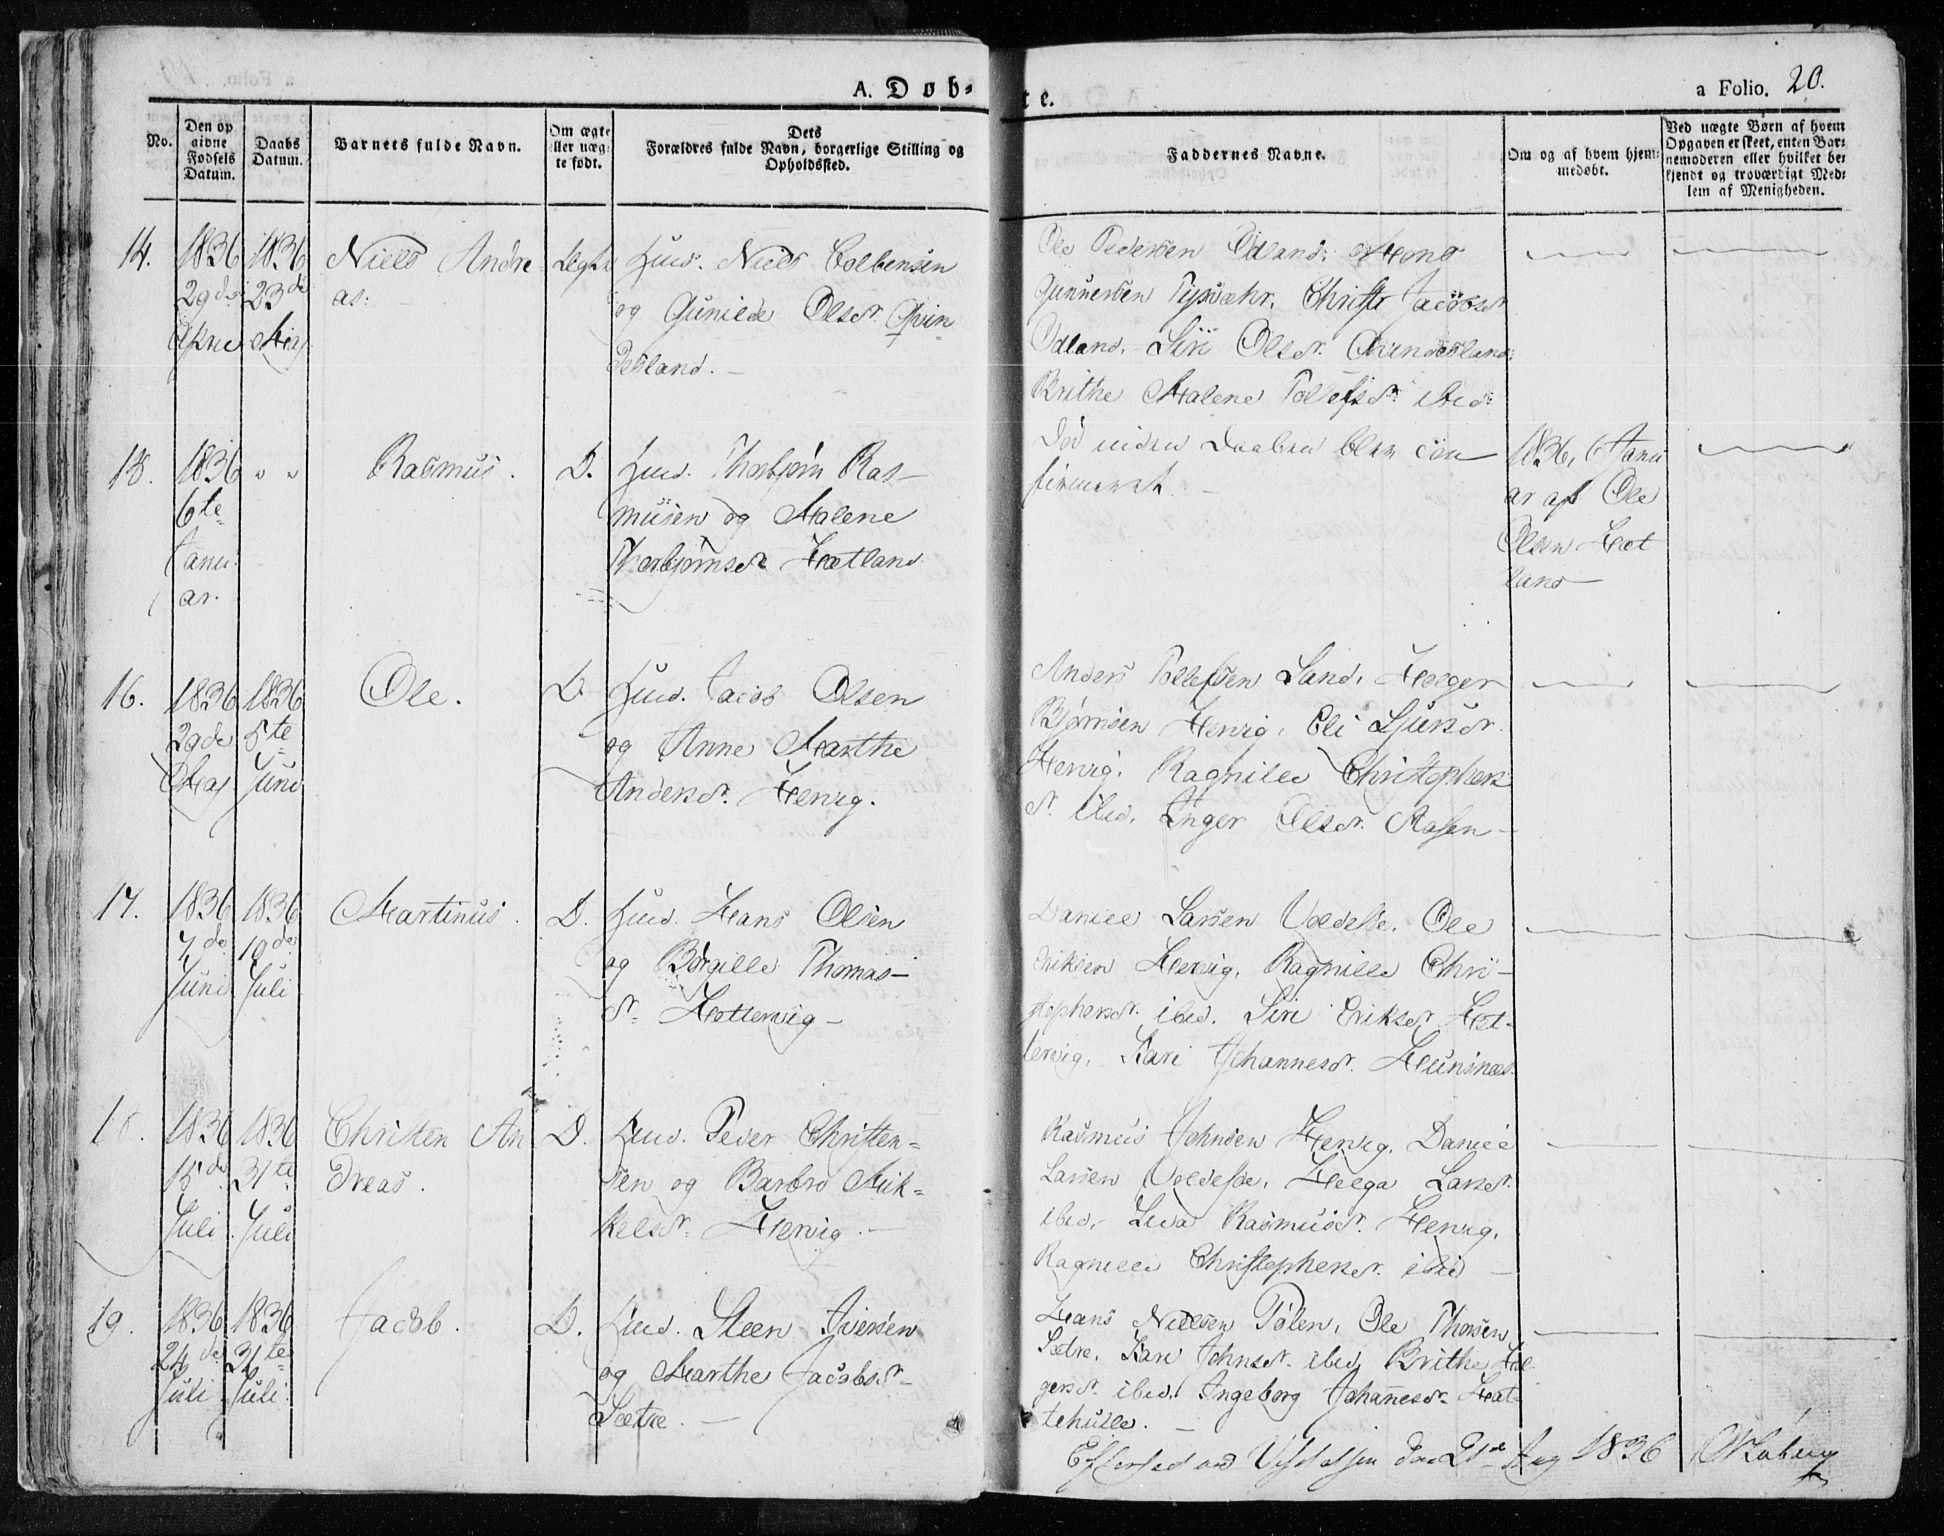 A. Døb=
te.
a Folio. 20.
No.
Den op
givne
Fødsels
Datum.
Daabs
Datum.
Barnets fulde Navn.
Om ægte
eller uæg-
te født.
Dets
Forældres fulde Navn, borgerlige Stilling og
Opholdssted.
Faddernes Navne.
Om og af hvem hjem-
medøbt.
Ved uægte Børn af hvem
Opgaven er skeet, enten Bar-
nemoderen eller hvilket be-
kjendt og troværdigt Med-
lem af Menigheden.
14.
1836
29de
April
1836
23de
May
Niels Andre
as.
Ægte
Huus. Niels Colbensen
og Gunilde Olsdr. Qvin
desland.
Ole Pedersen Ødland,
Gunnersen Tysvæhr, Christi Jacobsdr
Ødland, Siri Olsdr. Qvindesland,
Brithe Malene Tollefsdr. ibid.
15.
1836
6te
Janu
ar.
" "
Rasmus.
D.
Huus. Thorbjørn Ras-
musen og Malene
Thorbjørnsdr Hætland
Død uden Daaben blev con
firmeret.
1836, 6 Janu
ar af Ole
Olsen Hæt
land
16.
1836
29de
May
1836
5te
Juni
Ole.
D.
Huus. Jacob Olsen
og Anne Marthe
Andersdr. Hervig.
Anders Tollefsen Sand, Holger
Bjørnsen Hervig, Eli Sjursdr.
Hervig, Ragnille Christophers
dr. ibid, Inger Olsdr. Aasen
17.
1836
7de
Juni
1836
10de
Juli
Martinus.
D.
Huus. Hans Olsen
og Børgille Thomas-
dr. Hættervig
Daniel Larsen Voldesø, Ole
Eriksen Hervig, Ragnille Chri-
stophersdr. ibid. Siri Eriksdr. Hæt-
tervig, Kari Johannesdr. Huusnæs.
18.
1836
15de
Juli
1836
31te
Juli
Christen An
dreas.
D.
Huus. Peder Christen=
sen og Barbro Mik=
kelsdr. Hervig.
Rasmus Johnsen Hervig, Daniel
Larsen Voldesø, Helga Larsdr.
ibid, Liva Rasmusdr. Hervig,
Ragnille Christophersdr. ibid
19.
1836
24de
Juli
1836
31te
Juli
Jacob.
D.
Huus. Steen Iversen
og Marthe Jacobsdr
Sætre.
Hans Nielsen Polen, Ole Thorsen
Sætre, Kari Johnsdr. ibid, Brithe Hol-
gersdr. ibid, Ingeborg Johannesdr. Hat-
tehulle.
Efterseet ved den 21de Aug 1836